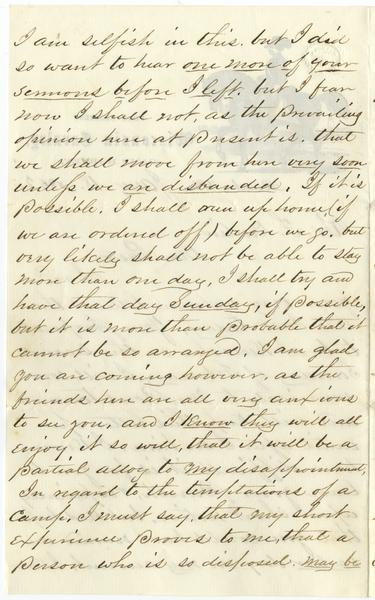 I am selfish in this. but I did
so want to hear one more of your
sermons before I left. but I fear
now I shall not, as the prevailing
opinion here at present is. that
we shall move from here very soon
unless we are disbanded. If it is
possible. I shall run up home, (if
we are ordered off) before we go. but
very likely shall not be able to stay
more than one day, I shall try and
have that day Sunday, if possible,
but it is more than probable that it
cannot be so arranged. I am glad
you are coming however, as the
friends here are all very anxious
to see you, and I know they will all
enjoy it so well, that it will be a
partial alloy to my disappointment,
In regard to the temptations of a
camp, I must say, that my short
experience proves to me, that a
person who is so disposed. may be